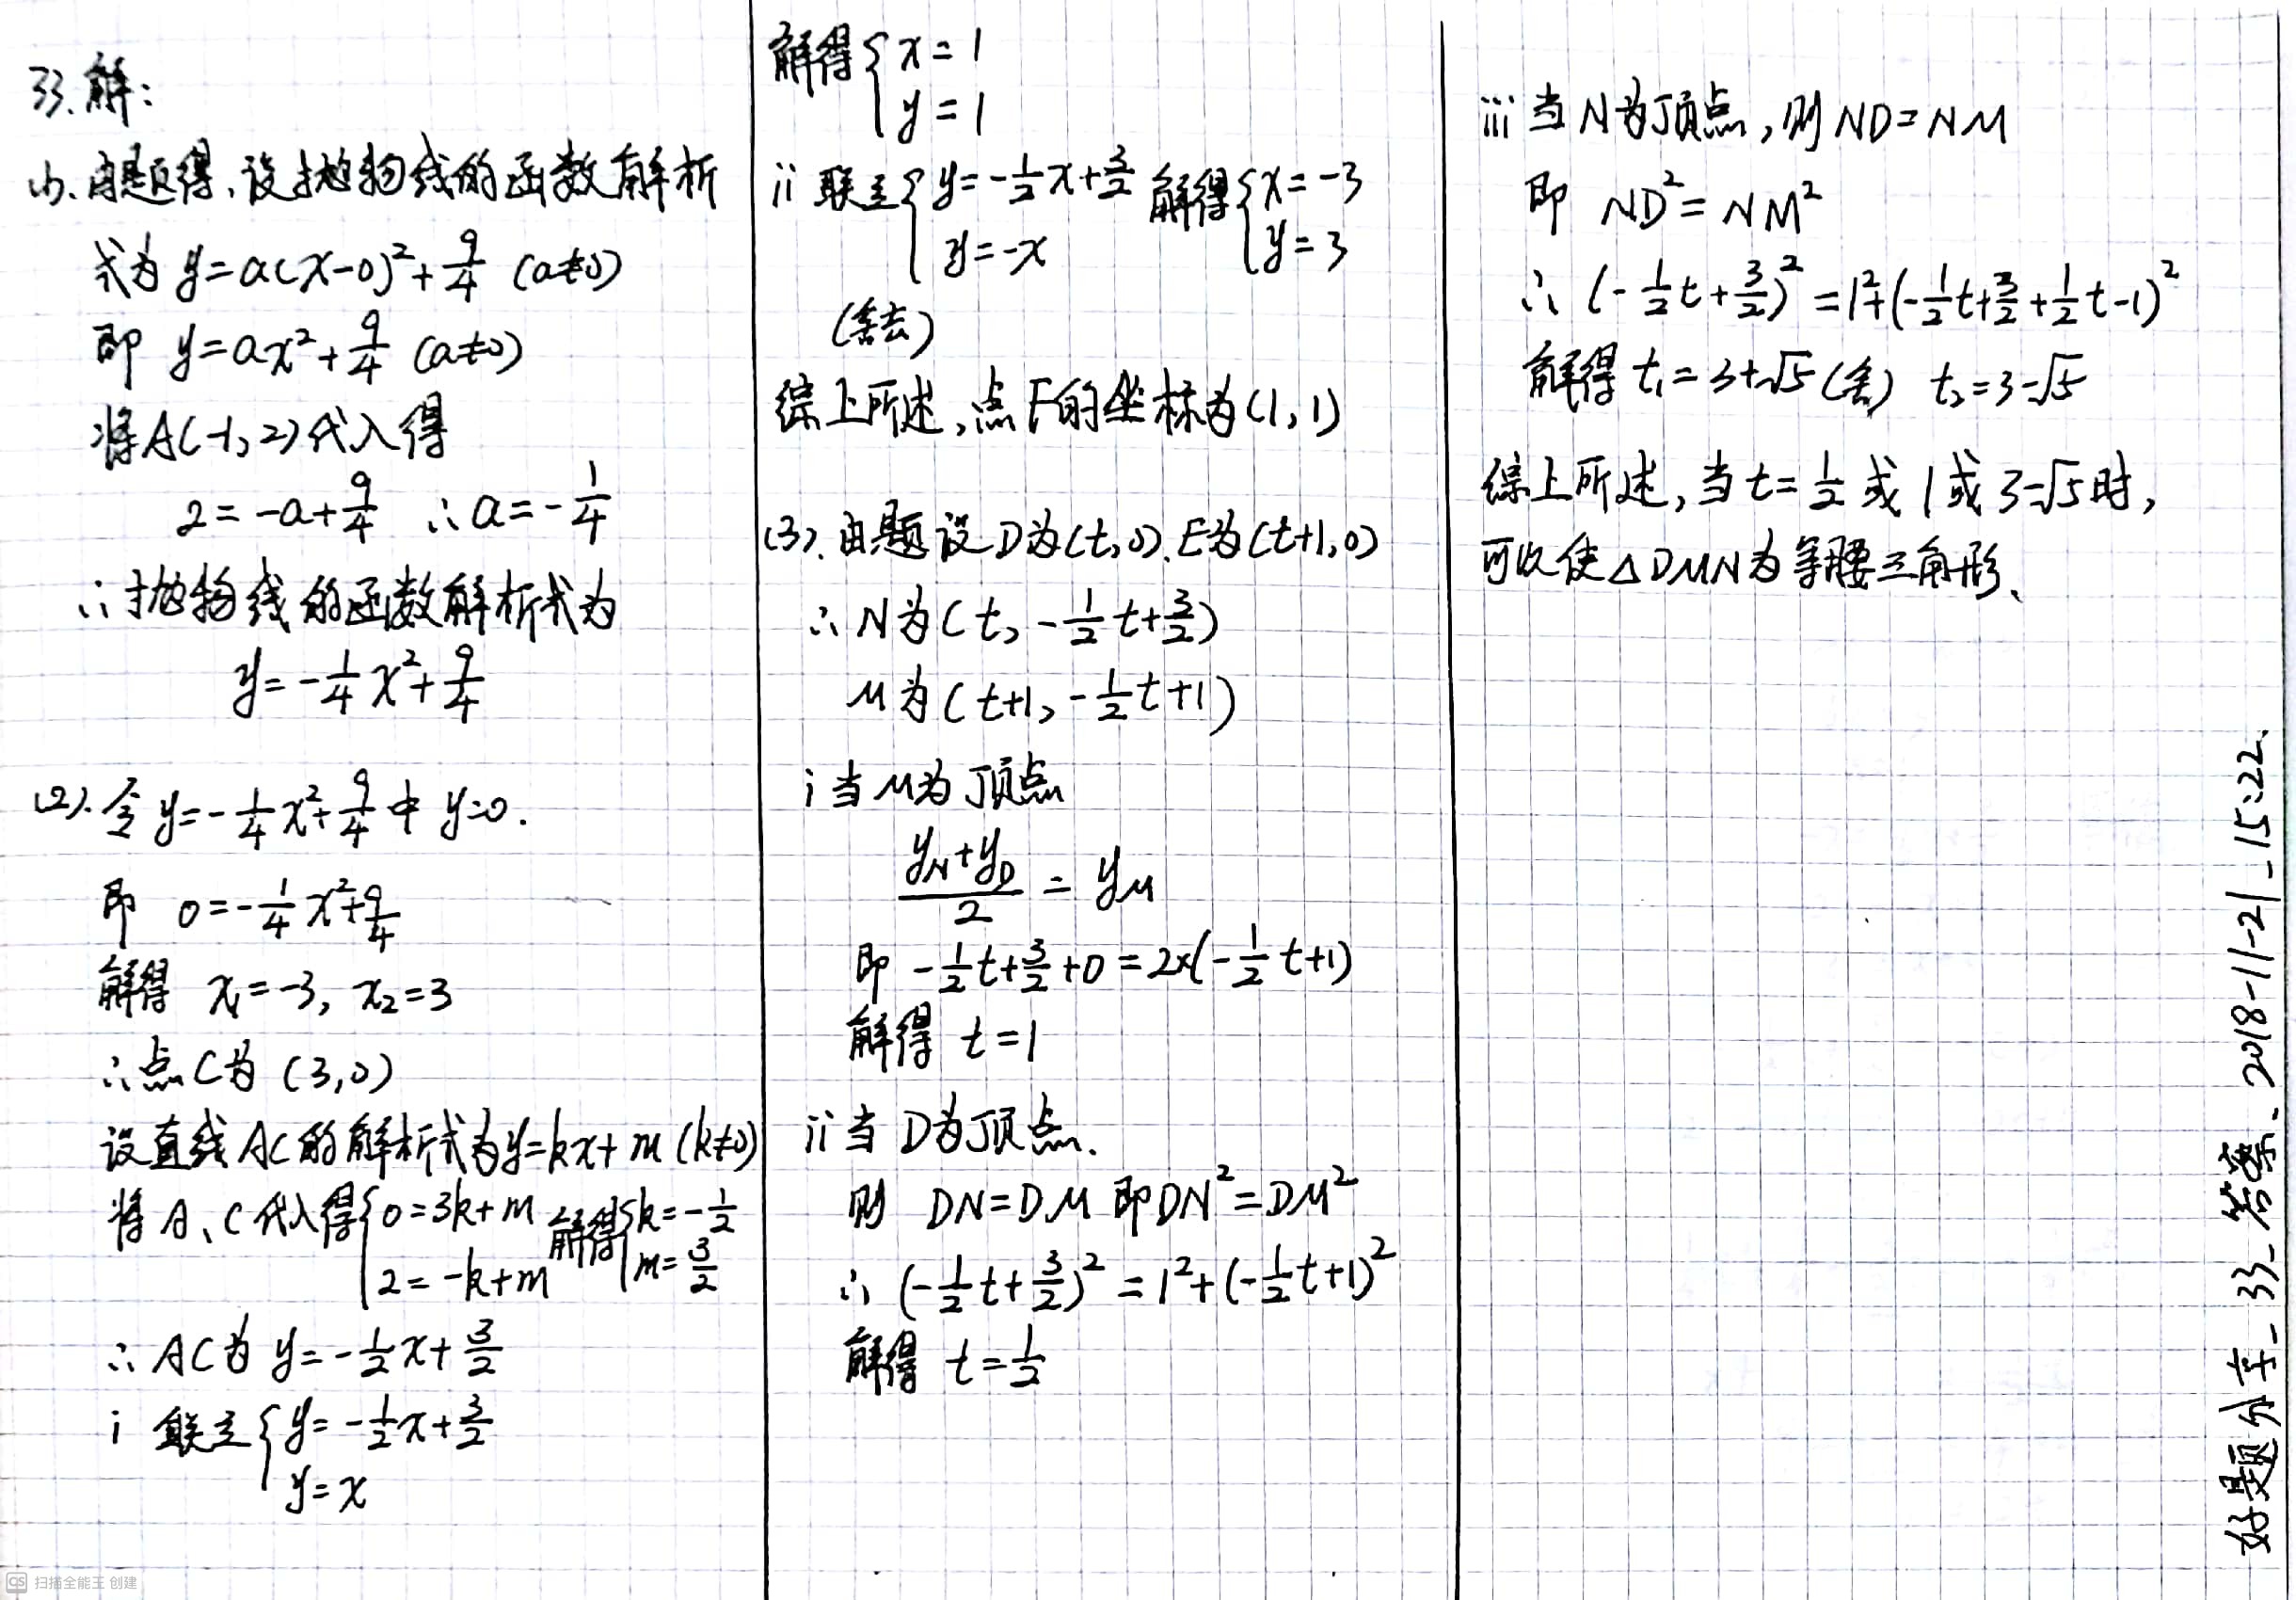 33.解:
(1).由题得,设抛物线的函数解析
式为 y=a(x-0)²+9/4 (a≠0)
即 y=ax²+9/4 (a≠0)
将A(-1,2)代入得
2=-a+9/4 ∴a=-1/4
∴抛物线的函数解析式为
y=-1/4x²+9/4
(2).令y=-1/4x²+9/4中 y=0.
即 0=-1/4x²+9/4
解得 x₁=-3, x₂=3
∴点C为(3,0)
设直线AC的解析式为y=kx+m(k≠0)
将A、C代入得{0=3k+m 2=-k+m 解得{k=-1/2 m=3/2
∴AC为 y=-1/2x+3/2
i 联立{y=-1/2x+3/2
y=x
解得{x=1
y=1
ii 联立{y=-1/2x+3/2 y=-x 解得{x=-3 y=3
(舍去)
综上所述,点F的坐标为(1,1)
(3).由题设D为(t,0).E为(t+1,0)
∴N为(t,-1/2t+3/2)
M为(t+1,-1/2t+1)
i 当M为顶点
(y_N+y_D)/2=y_M
即 -1/2t+3/2+0=2×(-1/2t+1)
解得 t=1
ii 当D为顶点.
则 DN=DM 即DN²=DM²
∴(-1/2t+3/2)²=1²+(-1/2t+1)²
解得 t=1/2
iii 当N为顶点,则ND=NM
即 ND²=NM²
∴(-1/2t+3/2)²=1²+(-1/2t+3/2+1/2t-1)²
解得 t₁=3+√5(舍) t₂=3-√5
综上所述,当t=1/2或1或3-√5时,
可以使△DMN为等腰三角形.
好题分享_33_答案.2018-11-21_15:22.
CS 扫描全能王 创建